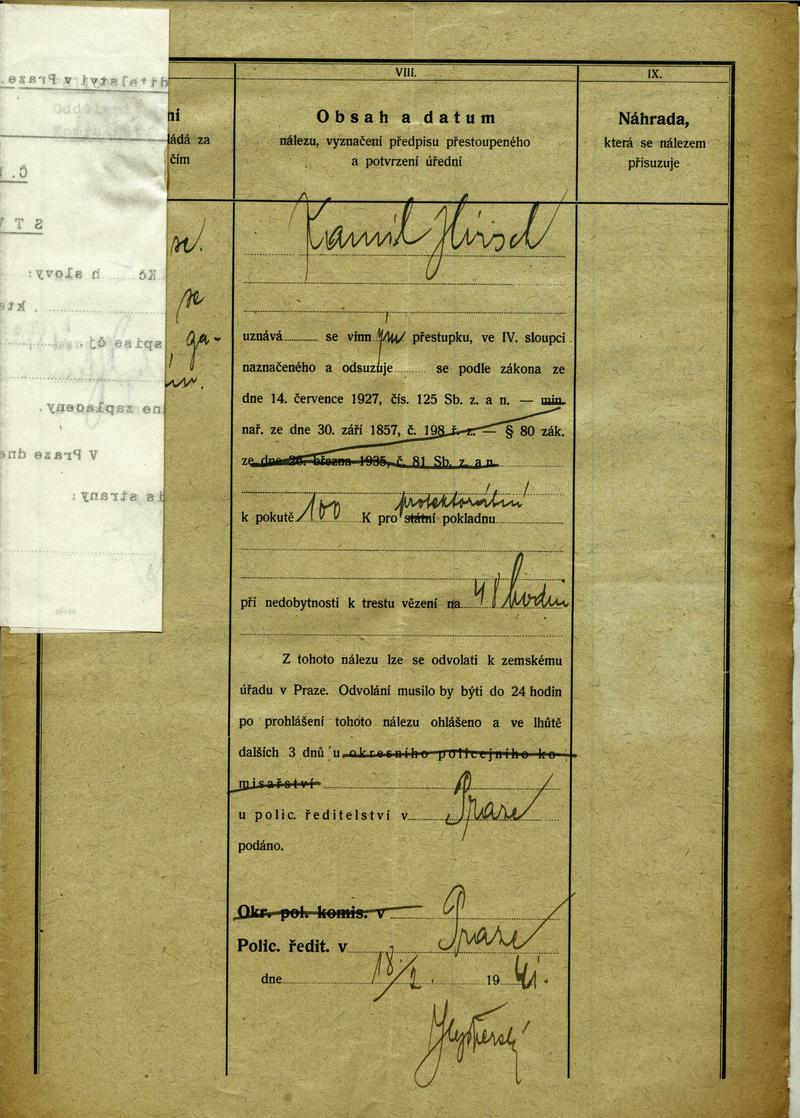 VIII.
IX.
ní
ládá za
čím
Obsah a datum
nálezu, vyznačení předpisu přestoupeného
a potvrzení úřední
Náhrada,
která se nálezem
přisuzuje
se.
se
, ga-
Kamil Hirsch
uznává se vinn ým přestupku, ve IV. sloupci
naznačeného a odsuzuje se podle zákona ze
dne 14. července 1927, čís. 125 Sb. z. a n. — min.
nař. ze dne 30. září 1857, č. 198 ř. z. — § 80 zák.
ze dne 26. března 1935, č. 81 Sb. z. a n.
protektorátní
k pokutě 100 K pro státní pokladnu
při nedobytnosti k trestu vězení na 48 hodin
Z tohoto nálezu lze se odvolati k zemskému
úřadu v Praze. Odvolání musilo by býti do 24 hodin
po prohlášení tohoto nálezu ohlášeno a ve lhůtě
dalších 3 dnů u okresního policejního ko-
misařství
u polic. ředitelství v Praze
podáno.
Okr. pol. komis. v
Polic. ředit. v Praze
dne 18/2. 1941.